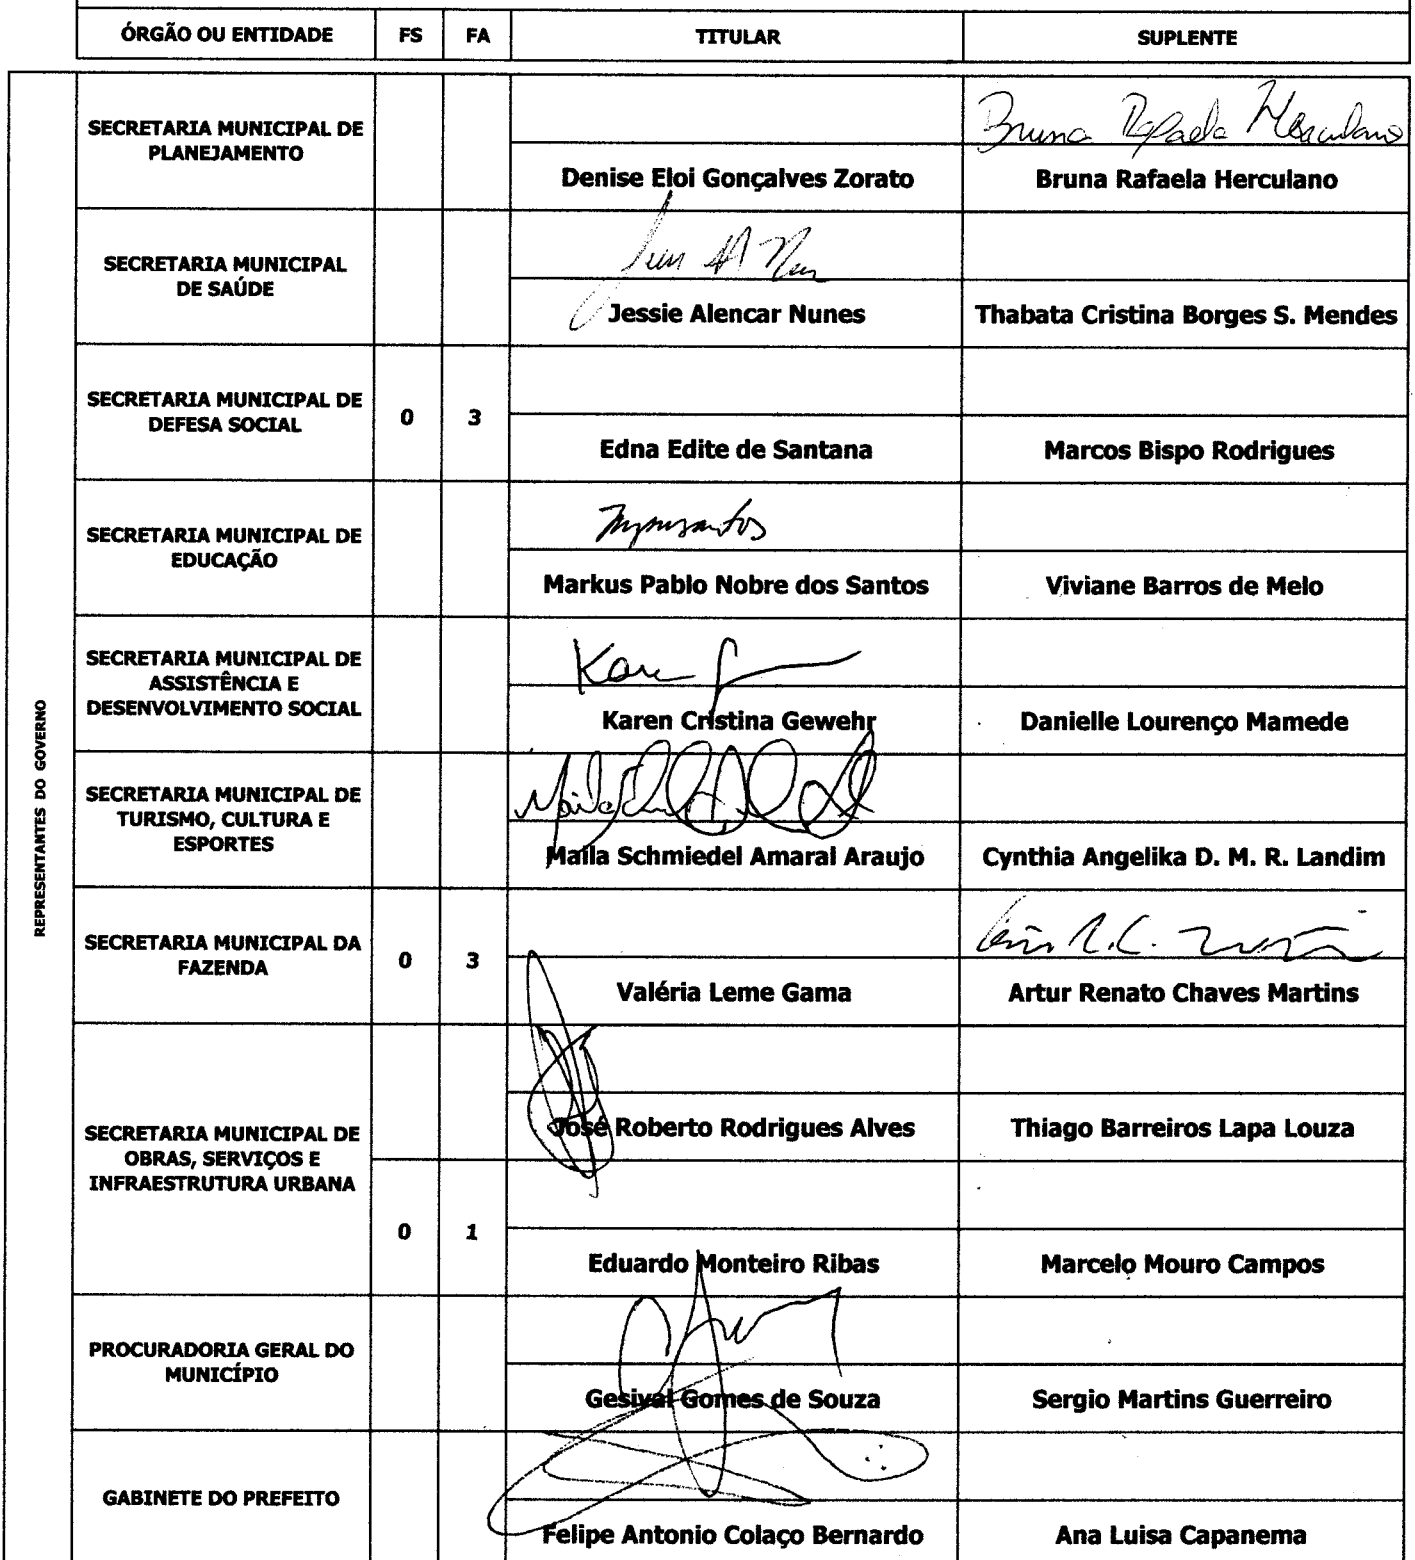 ÓRGÃO OU ENTIDADE FS FA TITULAR SUPLENTE
REPRESENTANTES DO GOVERNO
SECRETARIA MUNICIPAL DE
PLANEJAMENTO
Bruna Rafaela Herculano
Denise Eloi Gonçalves Zorato Bruna Rafaela Herculano
SECRETARIA MUNICIPAL
DE SAÚDE
Jessie Alencar Nunes Thabata Cristina Borges S. Mendes
SECRETARIA MUNICIPAL DE
DEFESA SOCIAL
0 3
Edna Edite de Santana Marcos Bispo Rodrigues
SECRETARIA MUNICIPAL DE
EDUCAÇÃO
Markus Pablo Nobre dos Santos Viviane Barros de Melo
SECRETARIA MUNICIPAL DE
ASSISTÊNCIA E
DESENVOLVIMENTO SOCIAL
Karen
Karen Cristina Gewehr Danielle Lourenço Mamede
SECRETARIA MUNICIPAL DE
TURISMO, CULTURA E
ESPORTES
Maila Schmiedel Amaral Araujo Cynthia Angelika D. M. R. Landim
SECRETARIA MUNICIPAL DA
FAZENDA
0 3
Valéria Leme Gama Artur Renato Chaves Martins
SECRETARIA MUNICIPAL DE
OBRAS, SERVIÇOS E
INFRAESTRUTURA URBANA
José Roberto Rodrigues Alves Thiago Barreiros Lapa Louza
0 1
Eduardo Monteiro Ribas Marcelo Mouro Campos
PROCURADORIA GERAL DO
MUNICÍPIO
Gesival Gomes de Souza Sergio Martins Guerreiro
GABINETE DO PREFEITO
Felipe Antonio Colaço Bernardo Ana Luisa Capanema